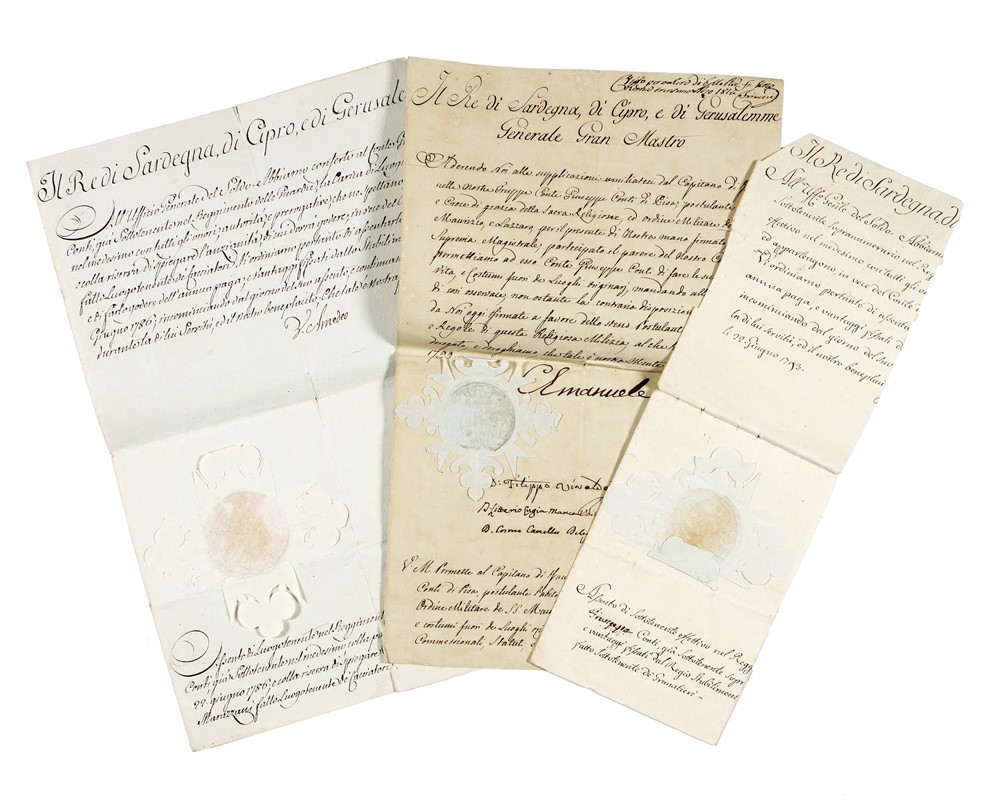 Il Re di Sardegna, di Cipro, e di Gerusale
All'Uffizio Generale del Soldo. Abbiamo conferto al Conte G
Conti già Sottotenente nel Reggimento delle Guardie, la Carica di Luogo
nel medesimo con tutti gli onori, autorità, e prerogative, che ne spettano
colla riserva di spiegare l'anzianità, di cui dovrà godere, in vece del
fatto Luogotenente di Cacciatori. V'ordiniamo pertanto di assentarlo
e di farlo godere dell'annua paga, e vantaggi fissati dallo Stabilim
Giugno 1786; incominciando dal giorno del suo assento, e continua
durante la di lui Servitù, ed il nostro beneplacito. Che tale è nostra
V. Amedeo
Assento di Luogotenente nel Reggiment
Conti già Sottotenente nel medesimo colla pa
22. giugno 1786; e colla riserva di spiegare
Marazzani fatto Luogotenente de' Cacciatori
Il Re di Sardegna, di Cipro, e di Gerusalemme
Generale Gran Mastro
Aderendo Noi alle supplicazioni umiliateci dal Capitano di
nelle Nostre Truppe Conte Giuseppe Conti di Pisa, postulante
e Croce di grazia della Sacra Religione, ed Ordine Militare de
Maurizio, e Lazzaro, per il presente di Nostra mano firmato
Suprema Magistrale, participato il parere del Nostro C
permettiamo ad esso Conte Giuseppe Conti di fare le su
Vita, e Costumi fuori de' Luoghi originarj, mandando all
di così essentare, non ostante la contraria disposizion
da Noi oggi firmate a favore dello stesso Postulant
e Regole di questa Religiosa Milizia, al che
deroghiamo, che tale è nostra Mente
1799.
CEmanuele
D. Filippo Vivalda
V. M. Permette al Capitano di
Conti di Pisa, postulante l'abito
Ordine Militare de' SS. Mau
e costumi fuori de' Luoghi ori
Commessionali, Statuti,
Il Re di Sardegna, di
All'Uffizio Gen.le del Soldo. Abbiamo
Sottotenente Soprannumerario nel Reg
effettivo nel medesimo, con tutti gli o
ed appartengono, in vece del
V'ordiniamo pertanto di assenta
annua paga, e vantaggi fissati d
incominciando dal giorno del suo
la di lui servitù, ed il nostro beneplaci
li 22 Giugno 1793.
Assento di Sottotenente effettivo nel Regg
Giuseppe Conti, già Sottotenente Sopr
e vantaggi fissati dal Regio Stabiliment
fatto Sottotenente de' Granatieri